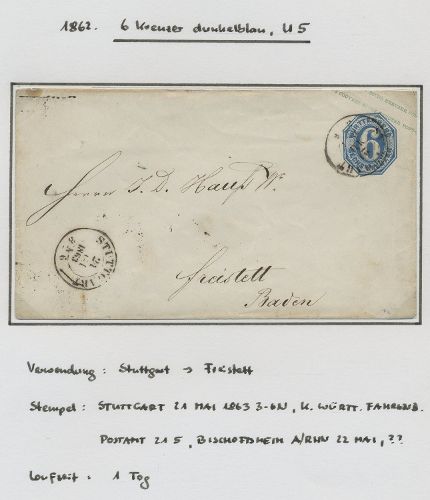 1862. 6 Kreuzer dunkelblau, U 5
6
Herrn J. D. Hauß We.
STUTTGART
21
1863
Freistett
Baden
Verwendung: Stuttgart → Freistett
Stempel: STUTTGART 21 MAI 1863 3-6N, K. WÜRTT. FAHREND.
POSTAMT 21 5, BISCHOFSHEIM A/RHN 22 MAI, ??
Laufzeit: 1 Tag